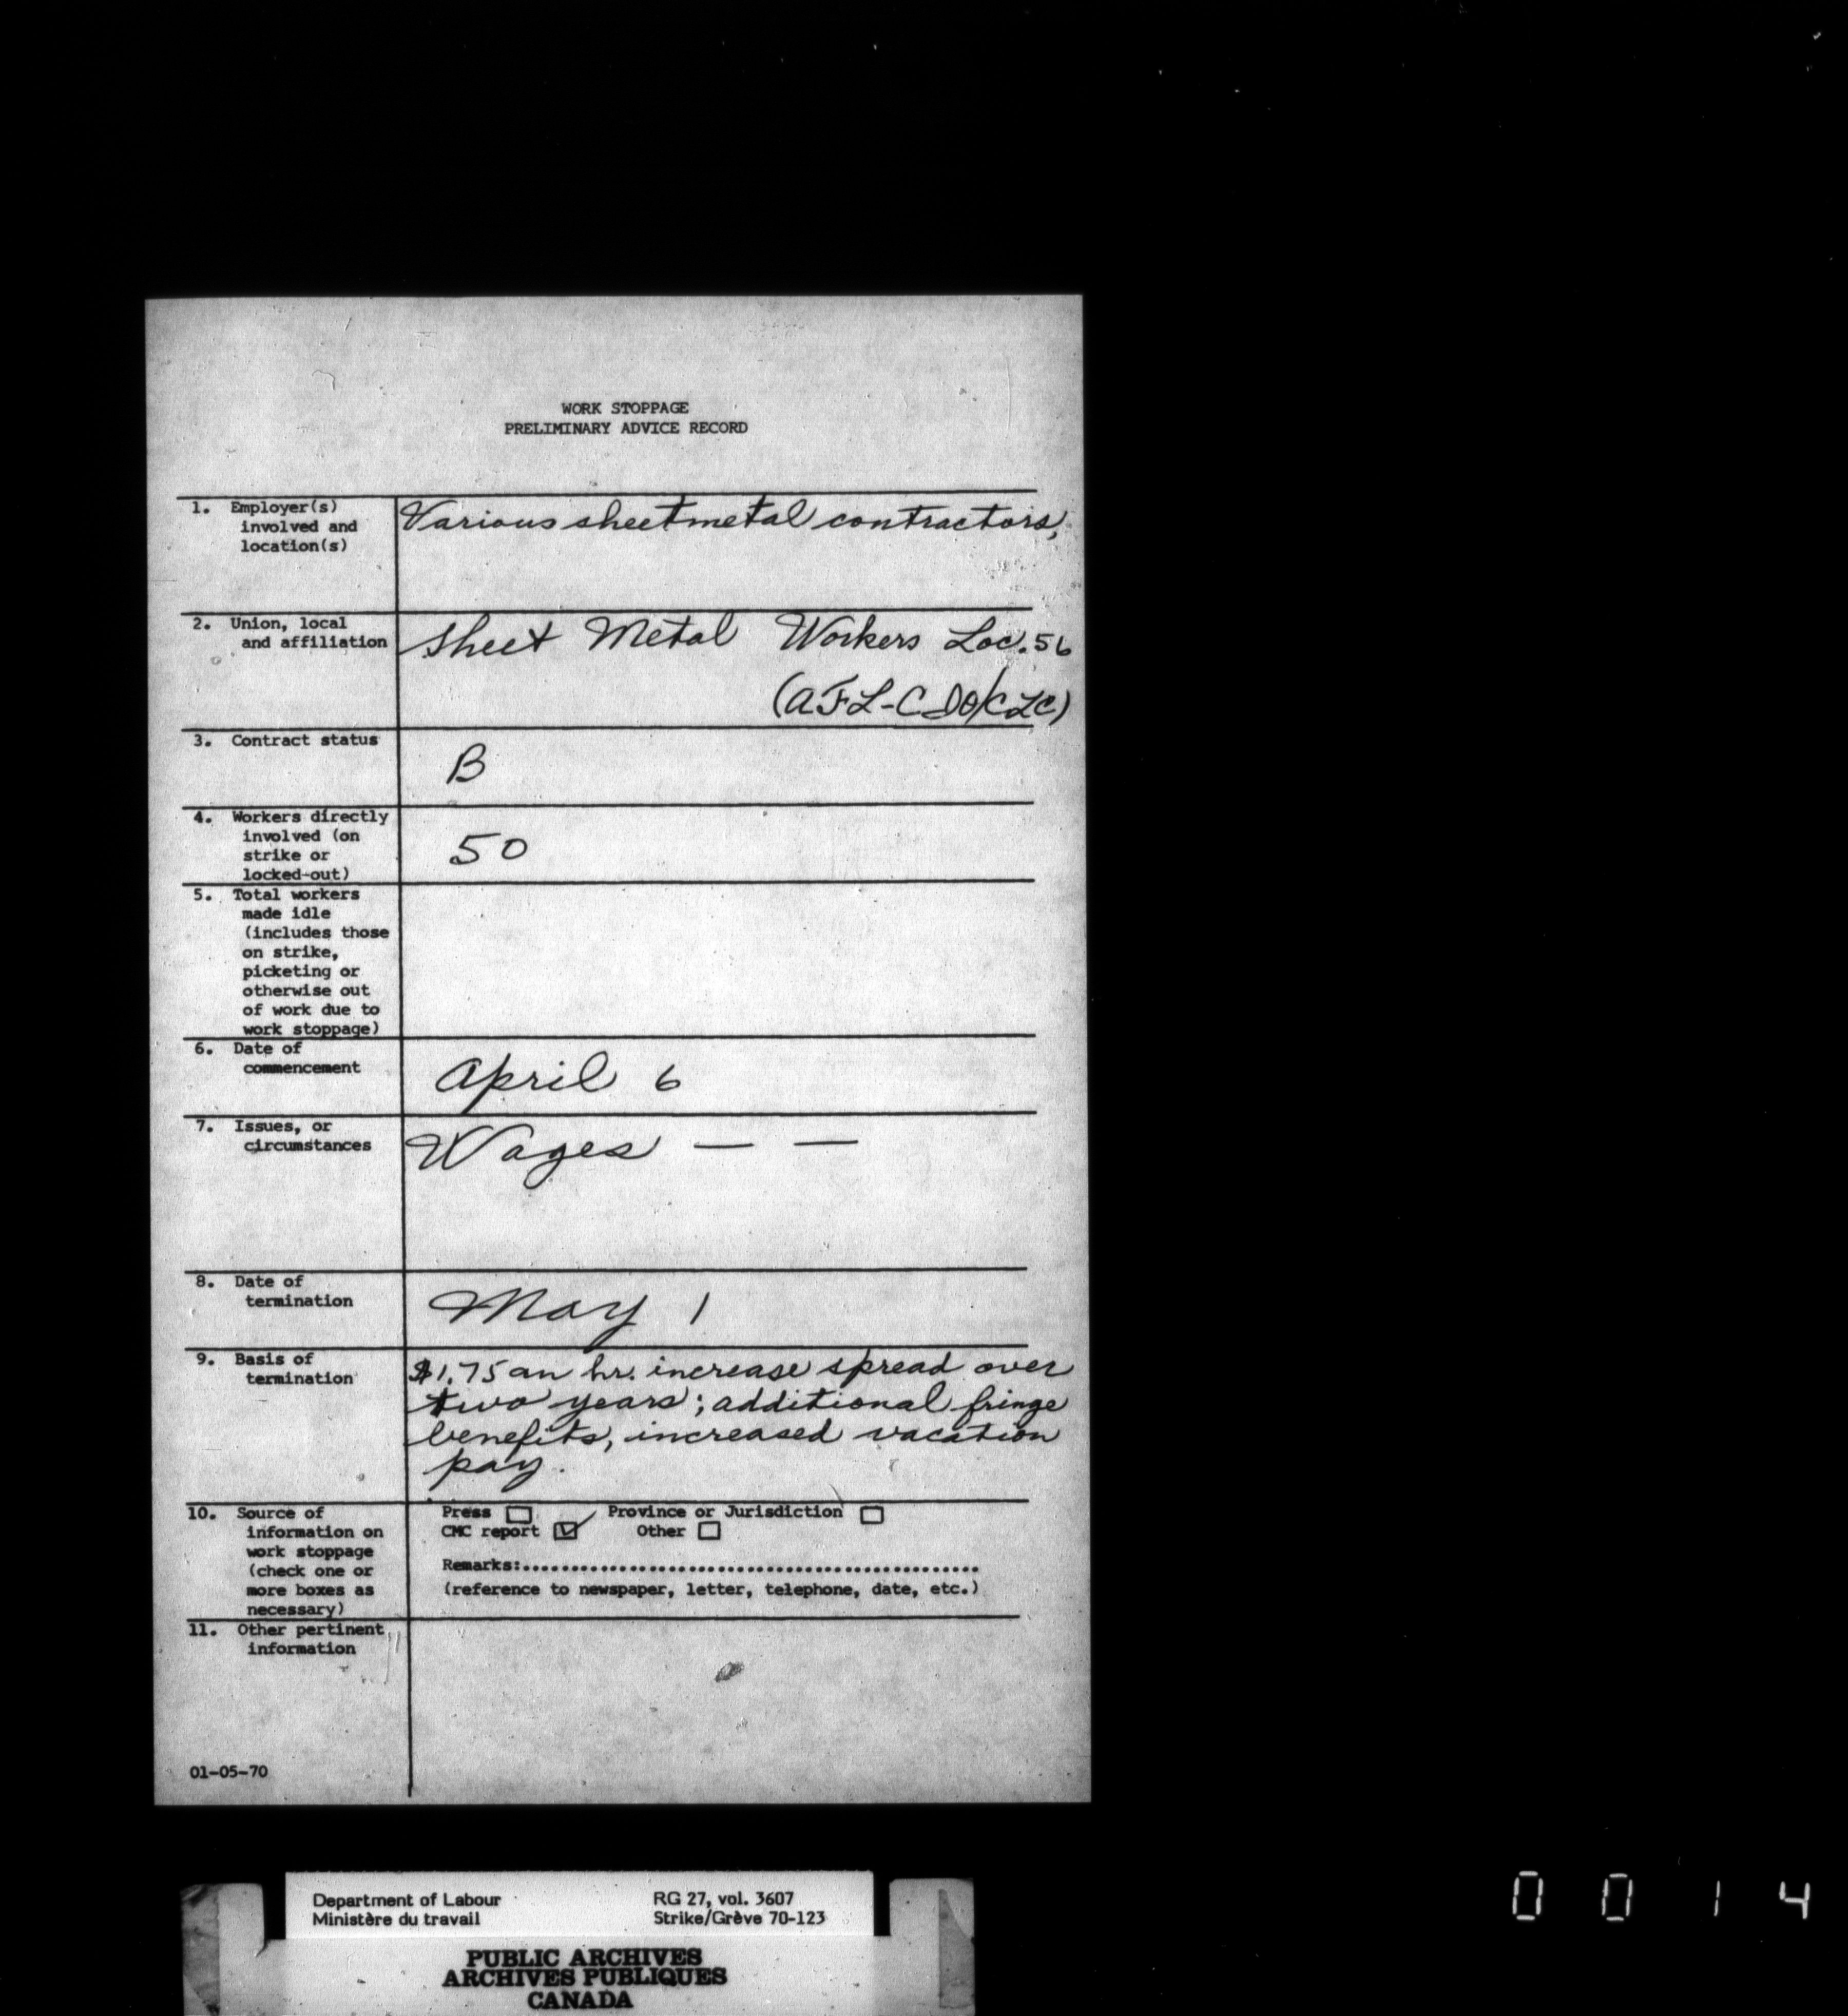 WORK STOPPAGE
PRELIMINARY ADVICE RECORD
1. Employer(s)
involved and
location(s)
Various sheetmetal contractors,
2. Union, local
and affiliation
Sheet Metal Workers Loc. 56
(AFL-CIO/CLC)
3. Contract status
B
4. Workers directly
involved (on
strike or
locked-out)
50
5. Total workers
made idle
(includes those
on strike,
picketing or
otherwise out
of work due to
work stoppage)
6. Date of
commencement
April 6
7. Issues, or
circumstances
Wages — —
8. Date of
termination
May 1
9. Basis of
termination
$1.75 an hr. increase spread over
two years; additional fringe
benefits, increased vacation
pay.
10. Source of
information on
work stoppage
(check one or
more boxes as
necessary)
Press ☐ Province or Jurisdiction ☐
CMC report ☑ Other ☐
Remarks:...............................................
(reference to newspaper, letter, telephone, date, etc.)
11. Other pertinent
information
01-05-70
Department of Labour RG 27, vol. 3607
Ministère du travail Strike/Grève 70-123
PUBLIC ARCHIVES
ARCHIVES PUBLIQUES
CANADA
0014